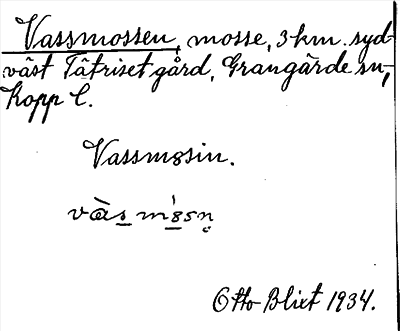 Vassmossen, mosse, 3 km. syd-
väst Tätriset gård, Grangärde sn,
Kopp l.
Vassmosin.
Otto Blixt 1934.